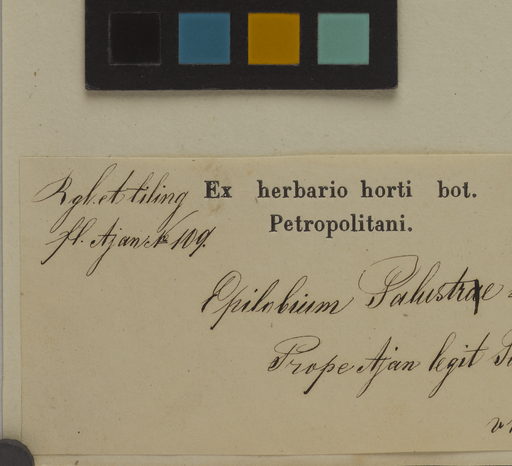 Rgl. et tiling
fl. Ajan. № 109.
Ex herbario horti bot.
Petropolitani.
Epilobium Palustre
Prope Ajan legit